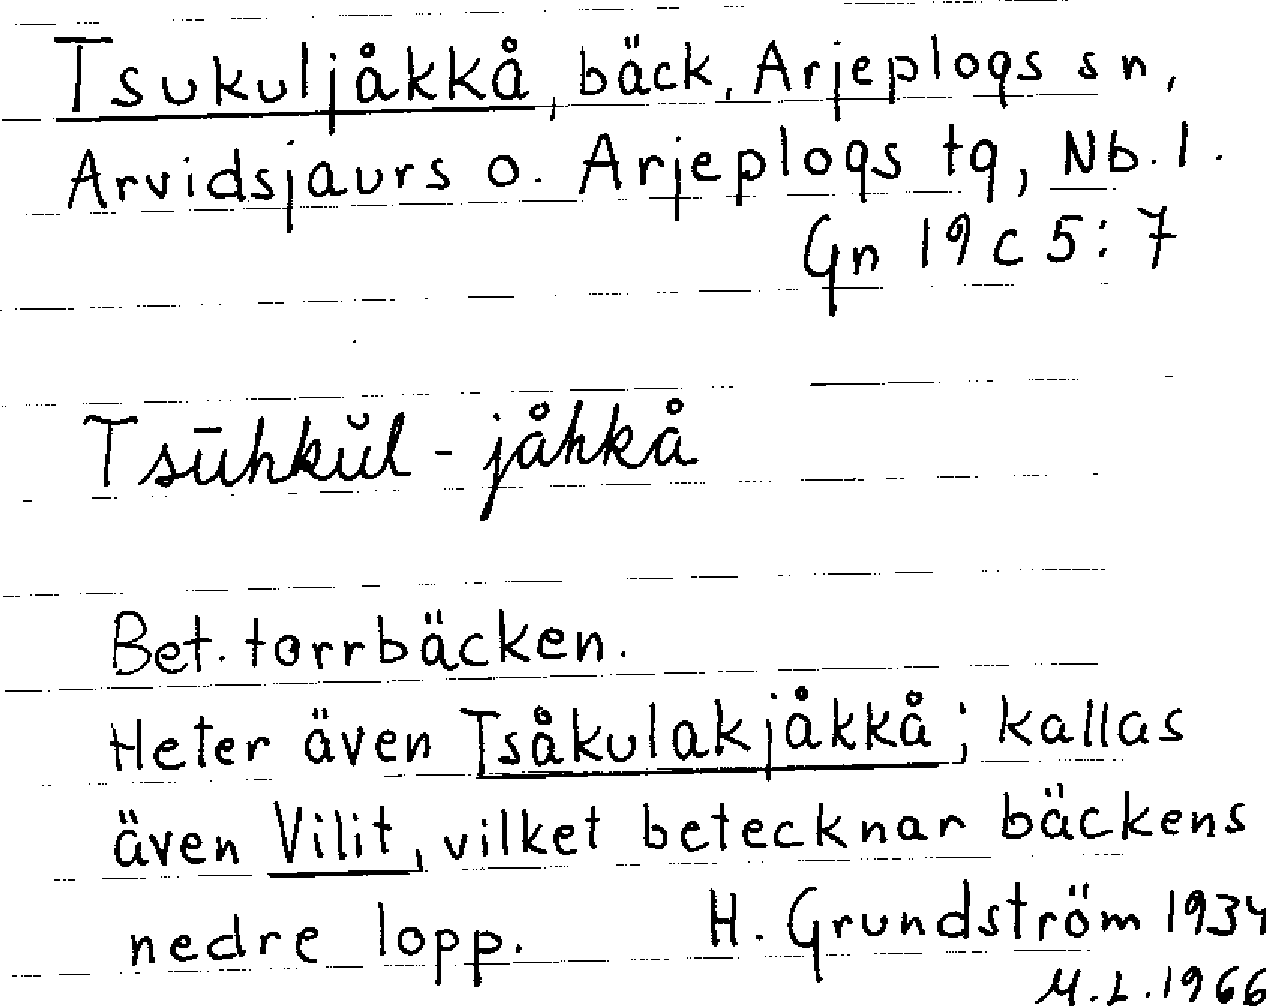 Tsukuljåkkå, bäck, Arjeplogs sn,
Arvidsjaurs o. Arjeplogs tg, Nb.l.
Gn 19 c 5:7
Tsūhkŭl-jåhkå
Bet. torrbäcken.
Heter även Tsåkulakjåkkå; kallas
även Vilit, vilket betecknar bäckens
nedre lopp. H. Grundström 1934
M.L.1966